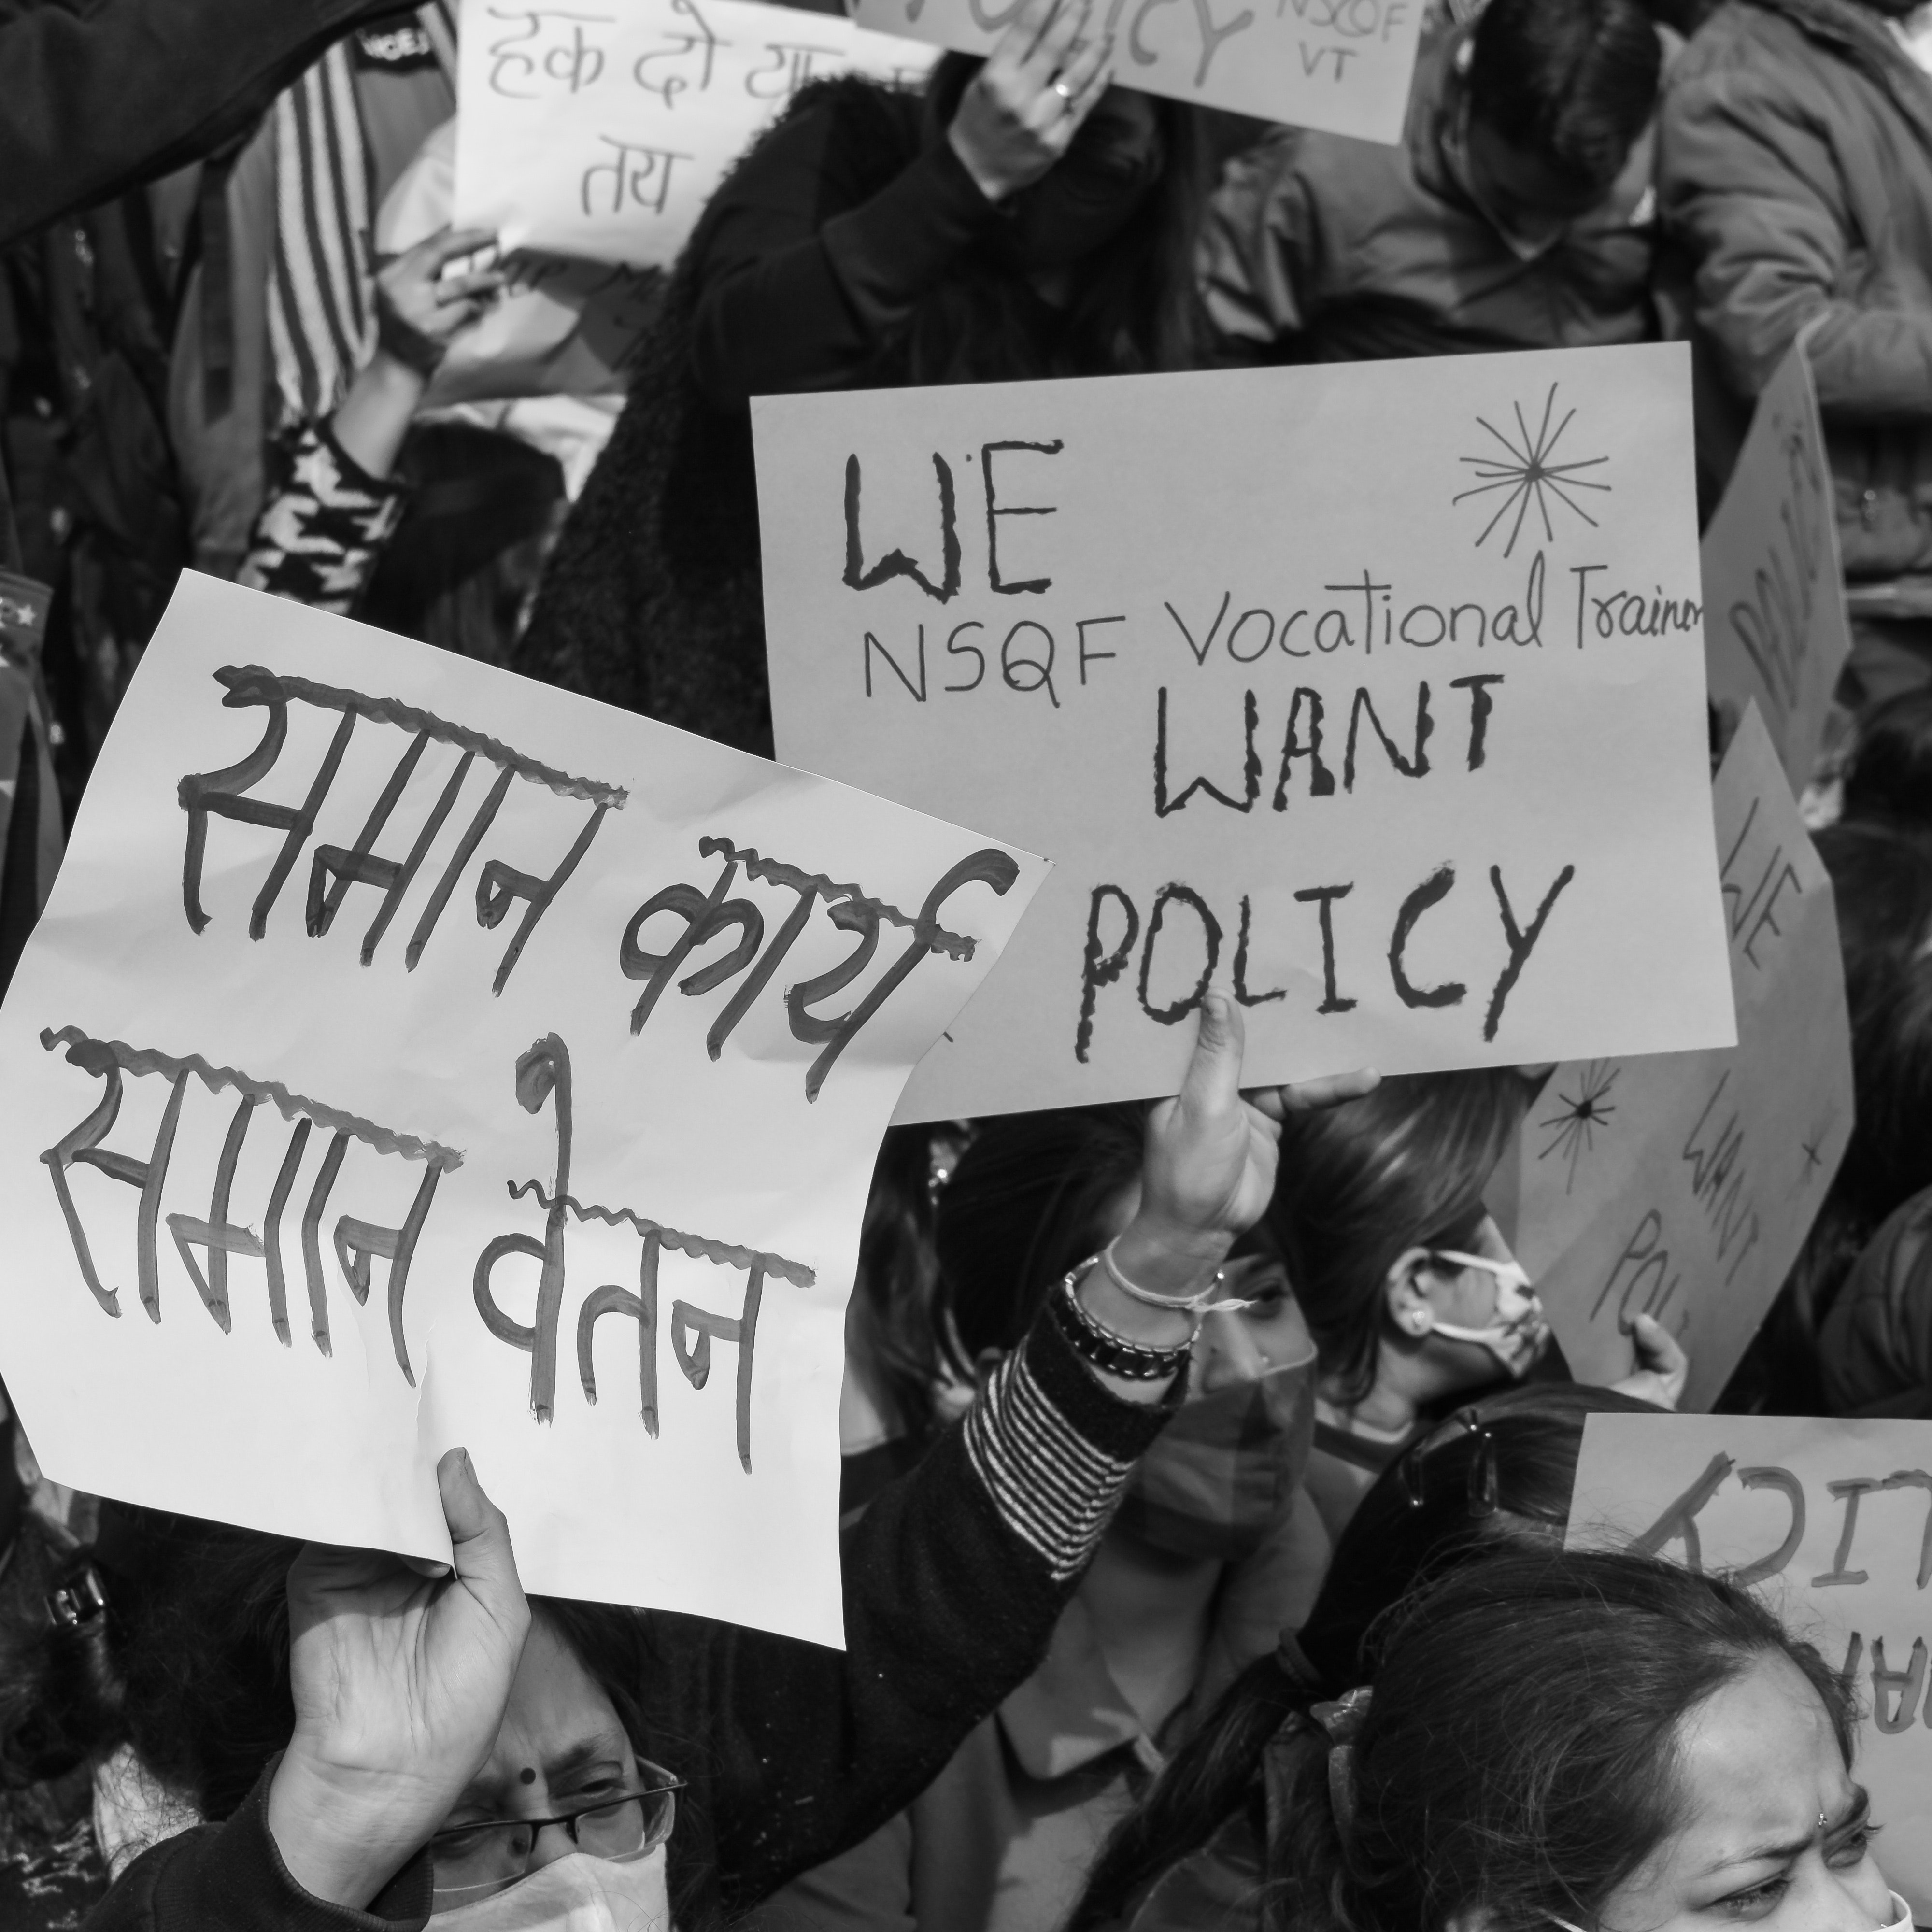 हक दो या
तय
POLICY NSQF
VT
WE
NSQF Vocational Trainer
WANT
POLICY
समान कार्य
समान वेतन
WE
WANT
POL
LICY